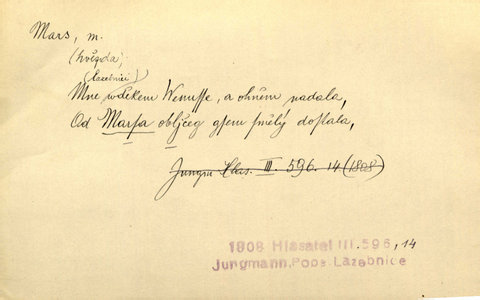 Mars, m.
(hvězda)
(Lazebnici)
Mne wděkem Wenusse, a ohněm nadala,
Od Marsa obljčeg gsem smělý dostala,
Jungm Hlas. III. 596. 14 (1808)
1808 Hlasatel III.596,14
Jungmann.Pope Lazebnice